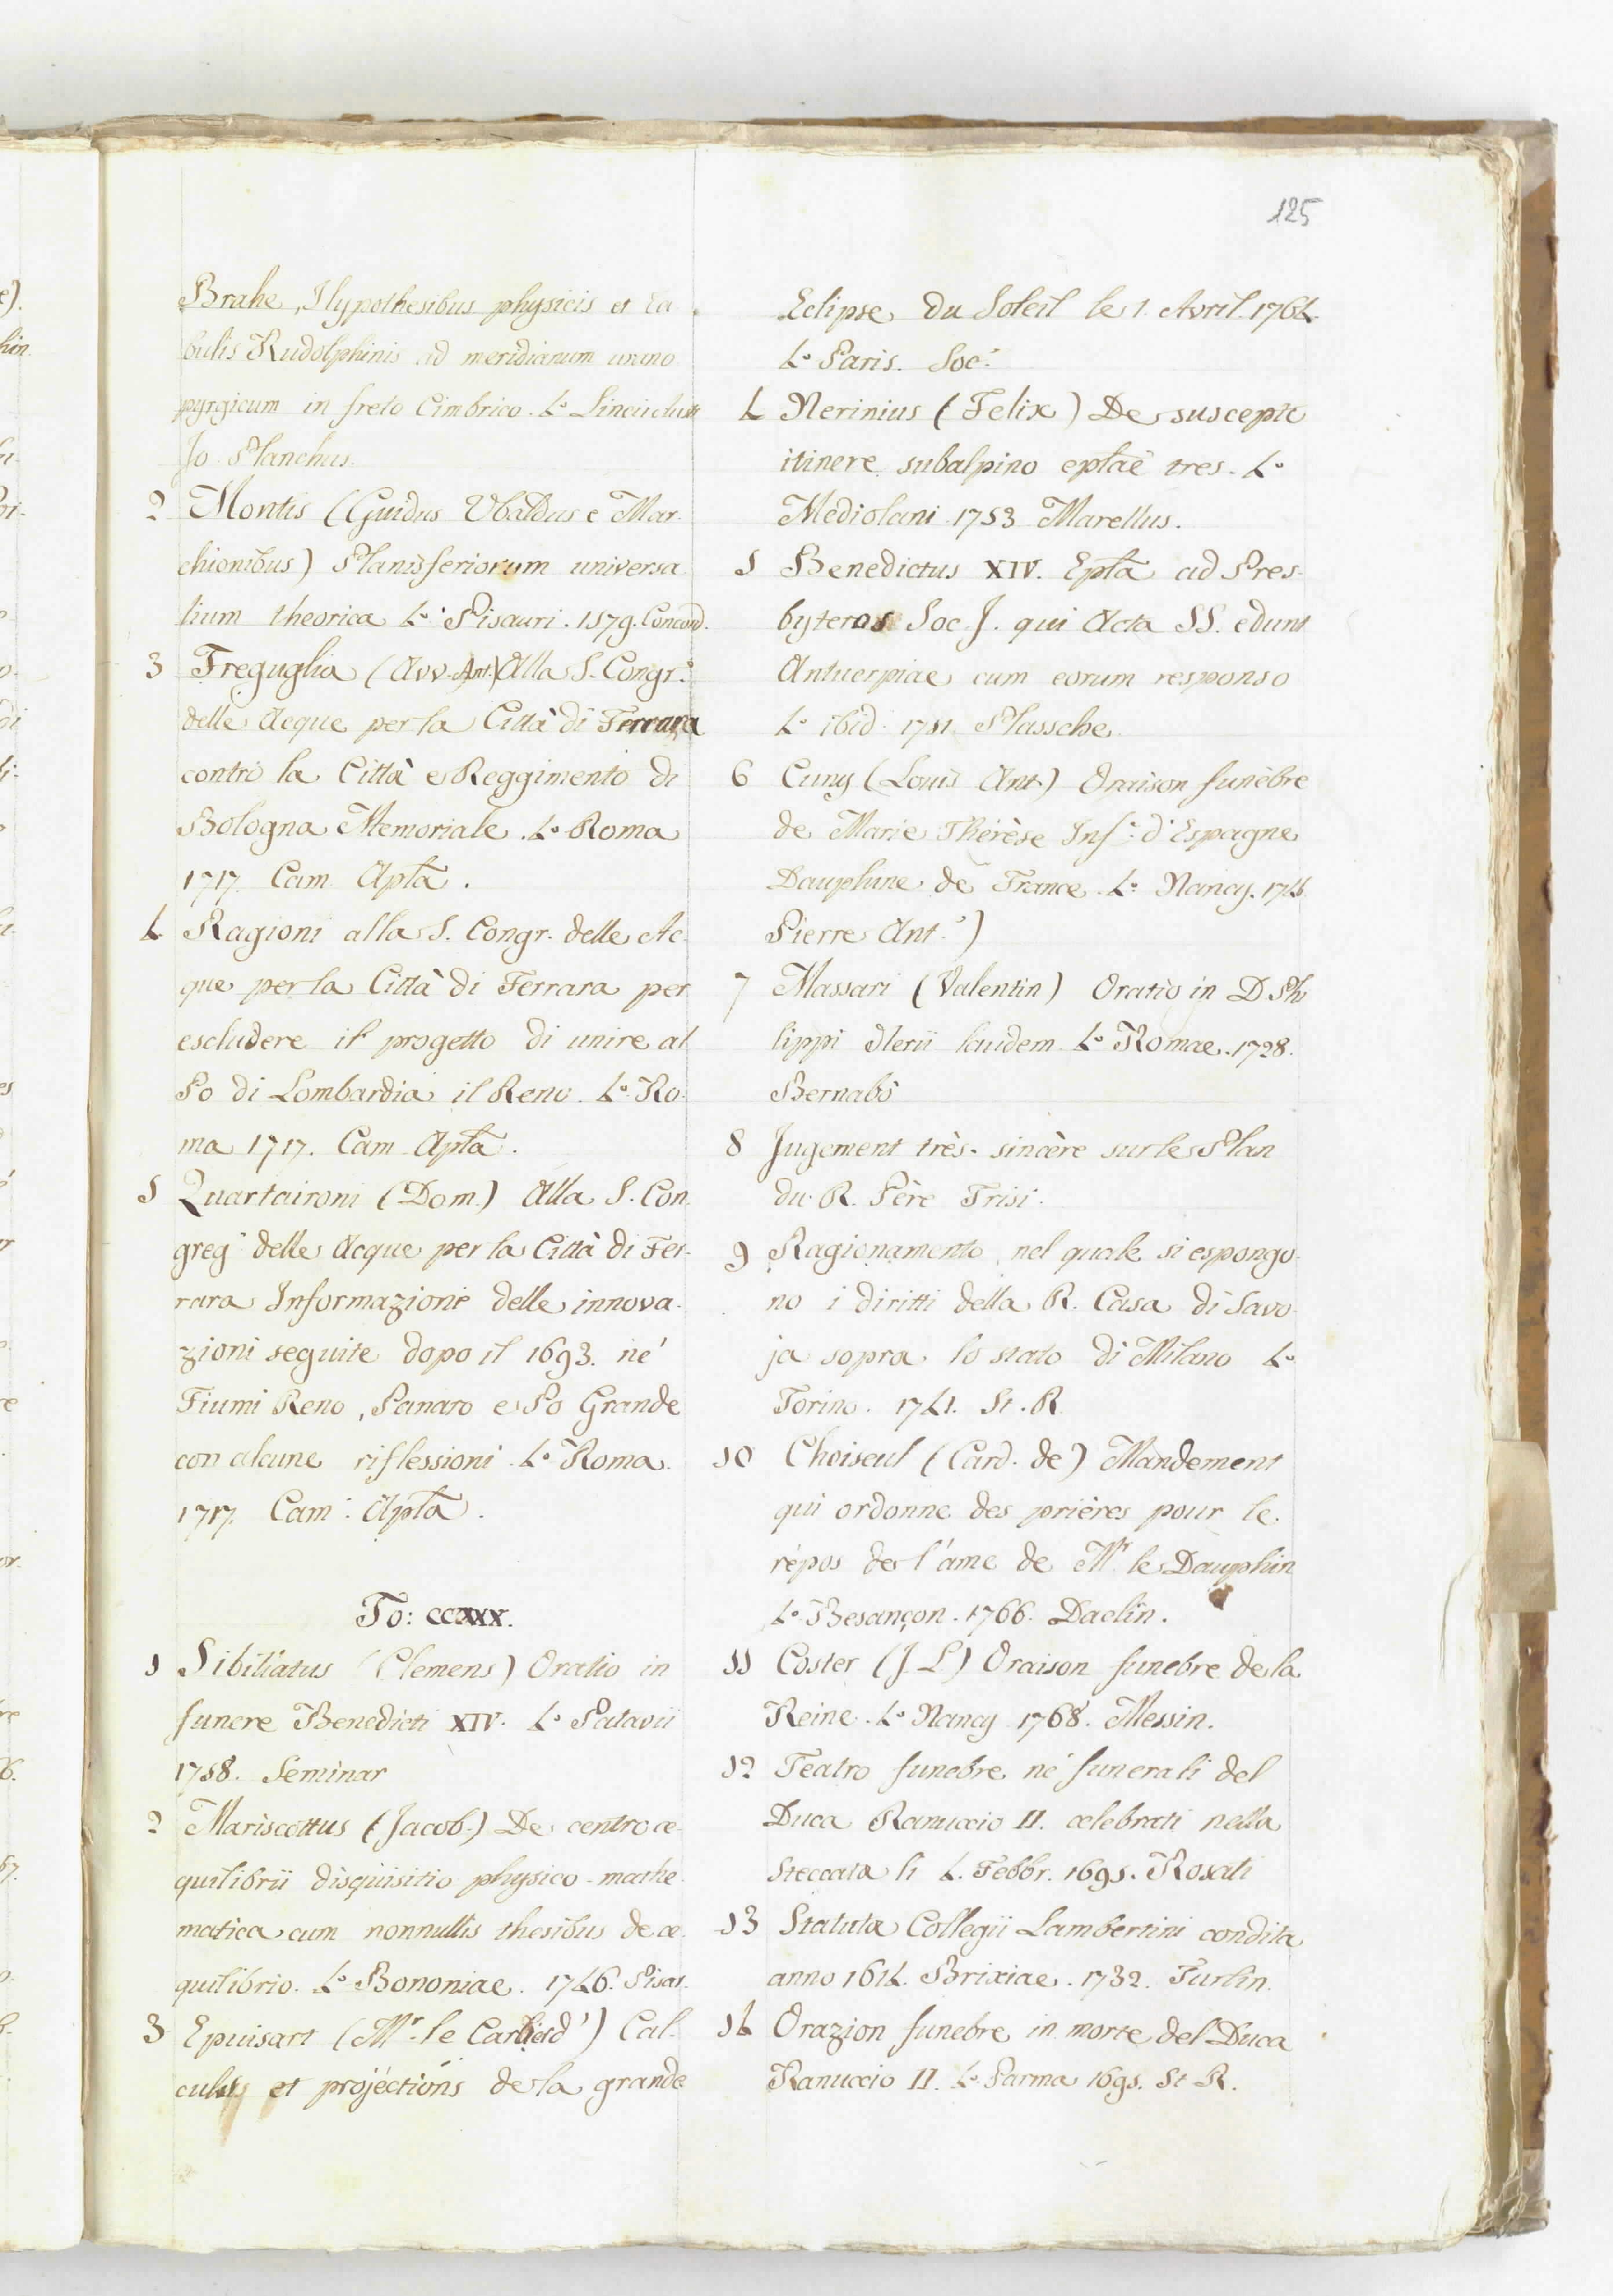 125
Brahe, Hypothesibus physicis et ta
bulis Rudolphinis ad meridianum urano
pyrgicum in freto Cimbrico. 4.o
Jo. Planchus.
2 Montis (Guidus Ubaldus e Mar
chionibus) Planisferiorum universa
lium theorica 4.o Pisauri. 1579. Concord.
3 Freguglia (Avv. Ant.) Alla S. Congr.e
delle Acque per la Città di Ferrara
contro la Città e Reggimento di
Bologna Memoriale. 4.o Roma
1717. Cam Aplã.
4 Ragioni alla S. Congr. delle Ac
que per la Città di Ferrara per
escludere il progetto di unire al
Po di Lombardia il Reno. 4.o Ro
ma 1717. Cam Aplã.
5 Quartaironi (Dom.) Alla S. Con
greg.e delle Acque per la Città di Fer
rara Informazione delle innova
zioni seguite dopo il 1693. ne'
Fiumi Reno, Panaro e Po Grande
con alcune riflessioni. 4.o Roma
1717. Cam: Aplã.
To: CCXXX.
1 Sibiliatus (Clemens) Oratio in
funere Benedicti XIV. 4.o Patavii
1758. Seminar
2 Mariscottus (Jacob.) De centro æ
quilibrii disquisitio physico-mathe
matica cum nonnullis thesibus de æ
quilibrio. 4.o Bononiae. 1746. Pisar.
3 Epuisart (Mr. le d') Cal
culs et projéctións de la grande
Eclipse du Soleil le 1. Avril. 1764.
4.o Paris. Soc.é
4 Nerinius (Felix) De suscepto
itinere subalpino eplãe tres. 4.o
Mediolani 1753 Marellus.
5 Benedictus XIV. Eplã ad Pres
byteros Soc. J. qui Acta SS. edunt
Antuerpiae cum eorum responso
4.o ibid. 1751. Plassche.
6 Cuny (Louis Ant.) Oraison funèbre
de Marie Thérèse Inf.e d'Espagne
Dauphine de France. 4.o Nancy. 1746
Pierre Ant.e)
7 Massari (Valentin) Oratio in D. Phi
lippi Nerii laudem 4.o Romae. 1728.
Bernabò
8 Jugement très-sincère sur les Plan
du R. Père Frisi.
9 Ragionamento, nel quale si espongo
no i diritti della R. Casa di Savo
ja sopra lo stato di Milano 4.o
Torino. 1741. St. R
10 Choiseul (Card. de) Mandement
qui ordonne des prières pour le
répos de l'âme de Mr. le Dauphin
4.o Besançon. 1766. Daclin.
11 Coster (J L) Oraison funebre de la
Reine. 4.o Nancy 1768. Messin.
12 Teatro funebre ne' funerali del
Duca Ranuccio II. celebrati nella
Steccata li 4. Febbr. 1695. Rosati
13 Statuta Collegii Lambertini condita
anno 1614. Brixiae. 1732. Turlin.
14 Orazion funebre in morte del Duca
Ranuccio II. 4.o Parma 1695. St R.